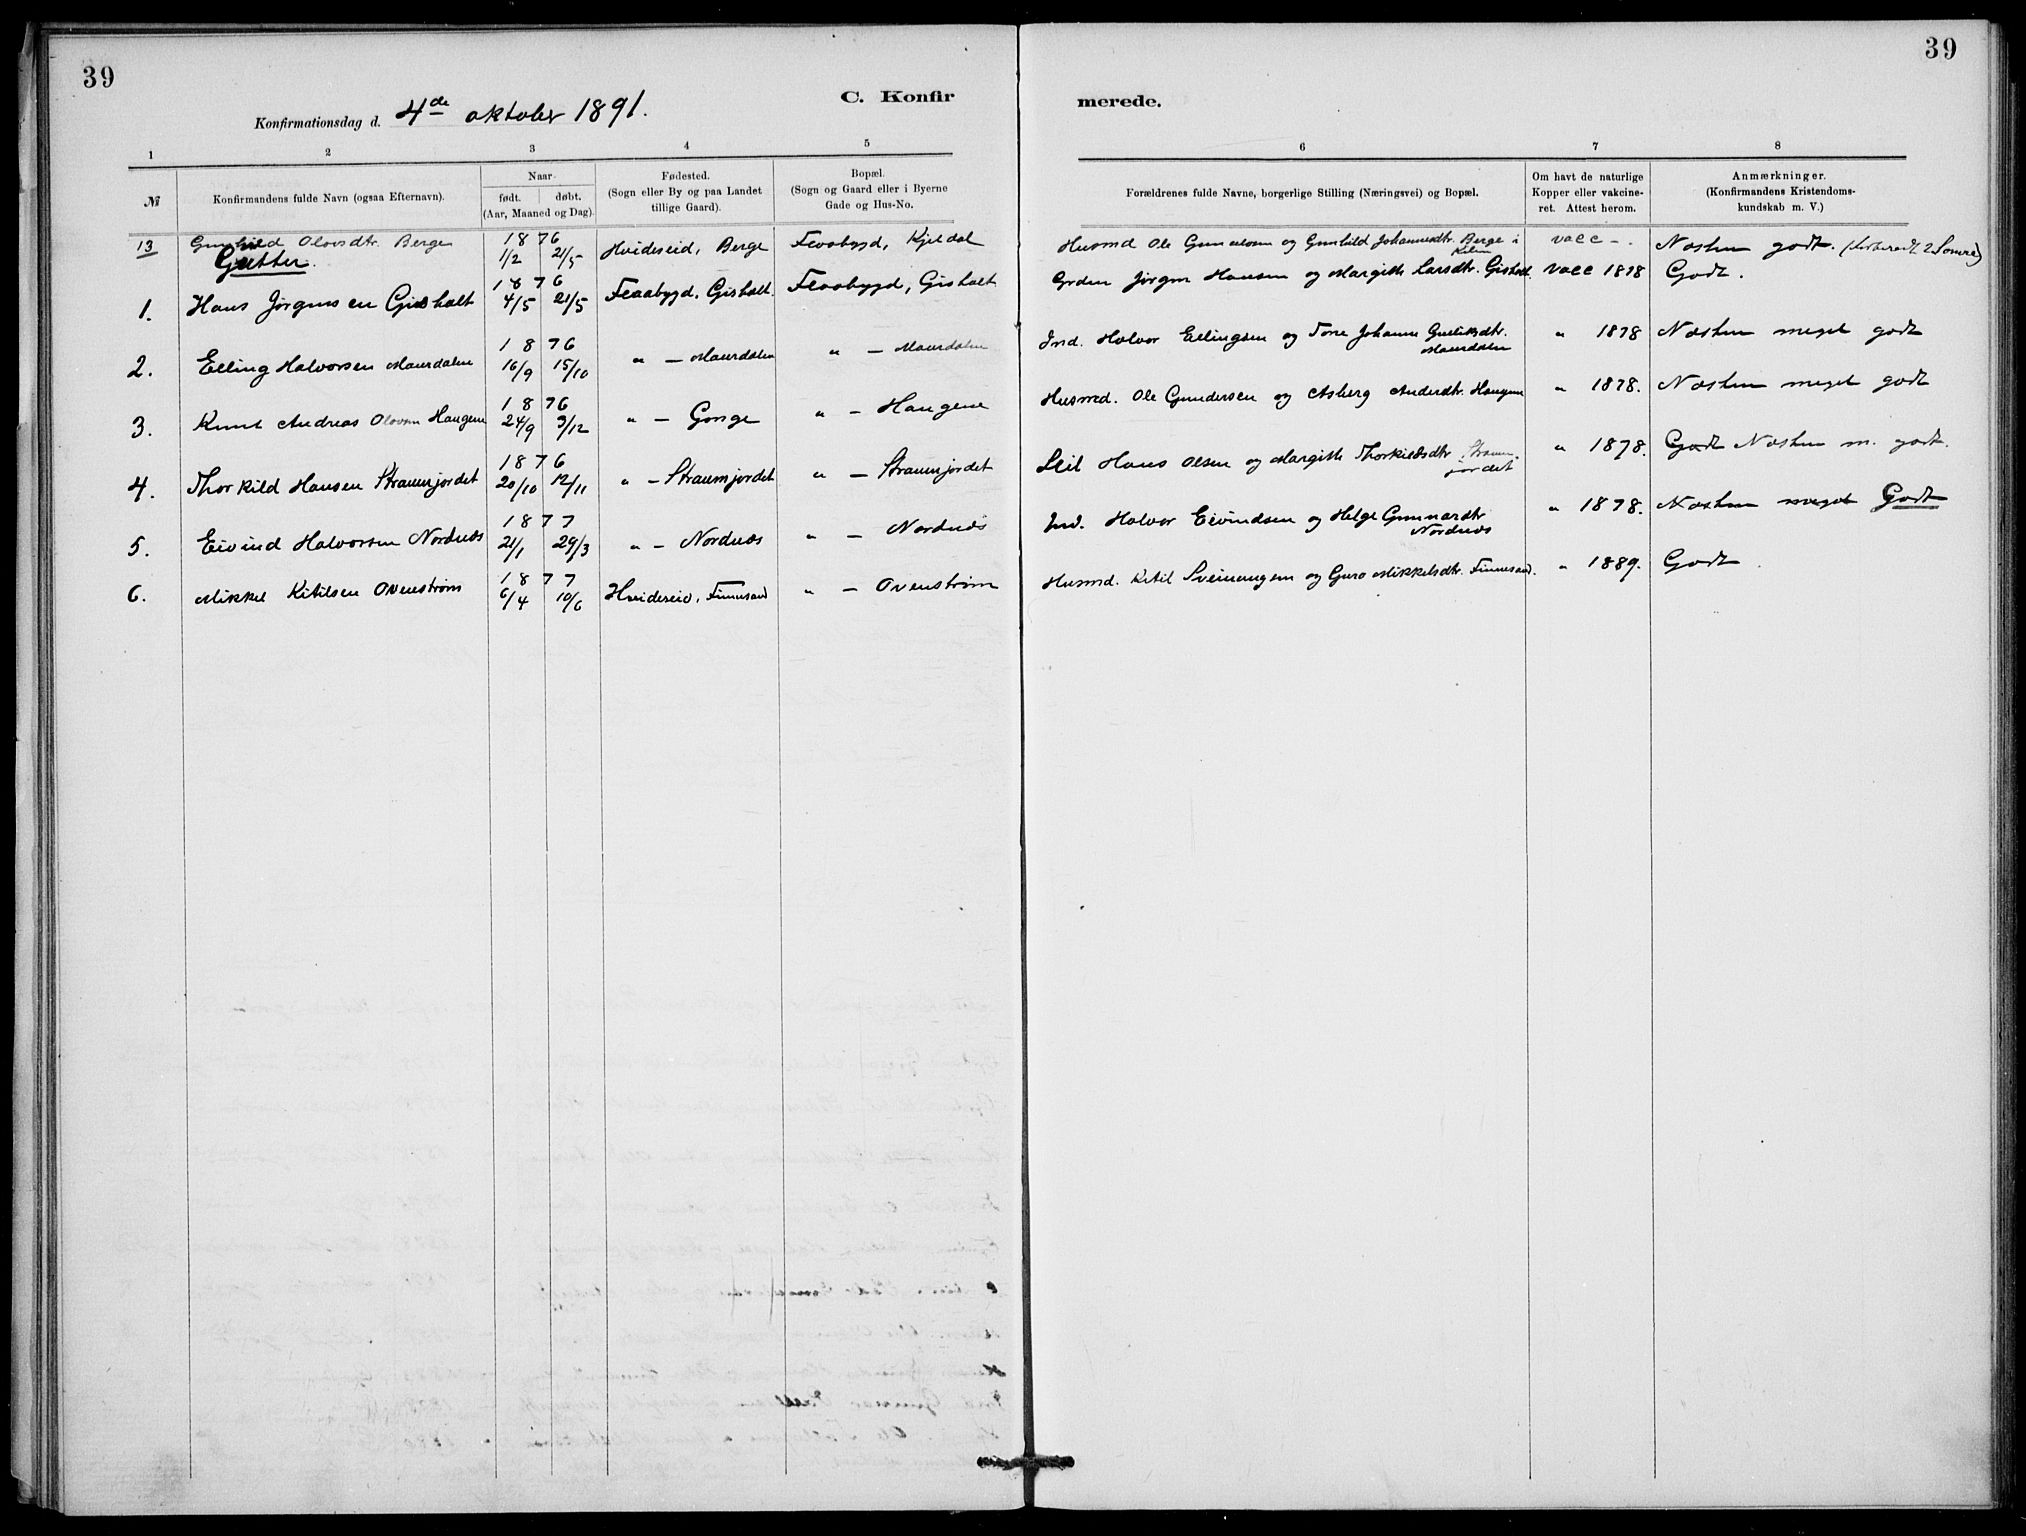 39
39
Konfirmationsdag d. 4de oktober 1891.
C. Konfir
merede.
1 2 3 4 5 6 7 8
№ Konfirmandens fulde Navn (ogsaa Efternavn).
Naar
født. døbt.
(Aar, Maaned og Dag).
Fødested.
(Sogn eller By og paa Landet
tillige Gaard).
Bopæl.
(Sogn og Gaard eller i Byerne
Gade og Hus-No.
Forældrenes fulde Navne, borgerlige Stilling (Næringsvei) og Bopæl.
Om havt de naturlige
Kopper eller vakcine-
ret. Attest herom.
Anmærkninger.
(Konfirmandens Kristendoms-
kundskab m. V.)
13 Gunhild Olovsdtr. Berge 1876 1/2 21/5 Hvideseid, Berge Flaabygd, Kjeldal Husmd Ole og Gunhild Johannesdtr. Berge i Kilen vacc -. Næsten godt. 2 Somre)
Gutter.
1. Hans Jørgensen Gisholt 1876 4/5 21/5 Flaabygd, Gisholt. Flaabygd, Gisholt Grden Jørgen Hansen og Margith Larsdtr. Gisholt. vacc 1878 Godt.
2. Elling Halvorsen Maurdalen 1876 16/9 15/10 " — Maurdalen " — Maurdalen Ind. Halvor Ellingsen og Tone Johanne Gulliksdtr. Maurdalen " 1878 Næsten meget godt
3. Knut Andreas Olovsen Haugene 1876 24/9 3/12 " — Gonge " — Haugene Husmd. Ole Gundersen og Asberg Andersdtr. Haugene " 1878. Næsten meget godt
4. Thorkild Hansen Straumjordet 1876 20/10 12/11 " — Straumjordet " — Straumjordet Hans Olsen og Margith Thorkildsdtr Straumjordet " 1878. Godt Næsten m. godt.
5. Eivind Halvorsen Nordnæs 1877 21/1 29/3 " — Nordnæs " — Nordnæs Ind. Halvor Eivindsen og Helge Gunnarsdtr Nordnæs " 1878. Næsten meget Godt
6. Mikkel Kitilsen Ovenstrøm 1877 6/4 10/6 Hvideseid, Finnesand " — Ovenstrøm Husmd. Kitil Sveinungsen og Guro Mikkelsdtr. Finnesand. " 1889. Godt.